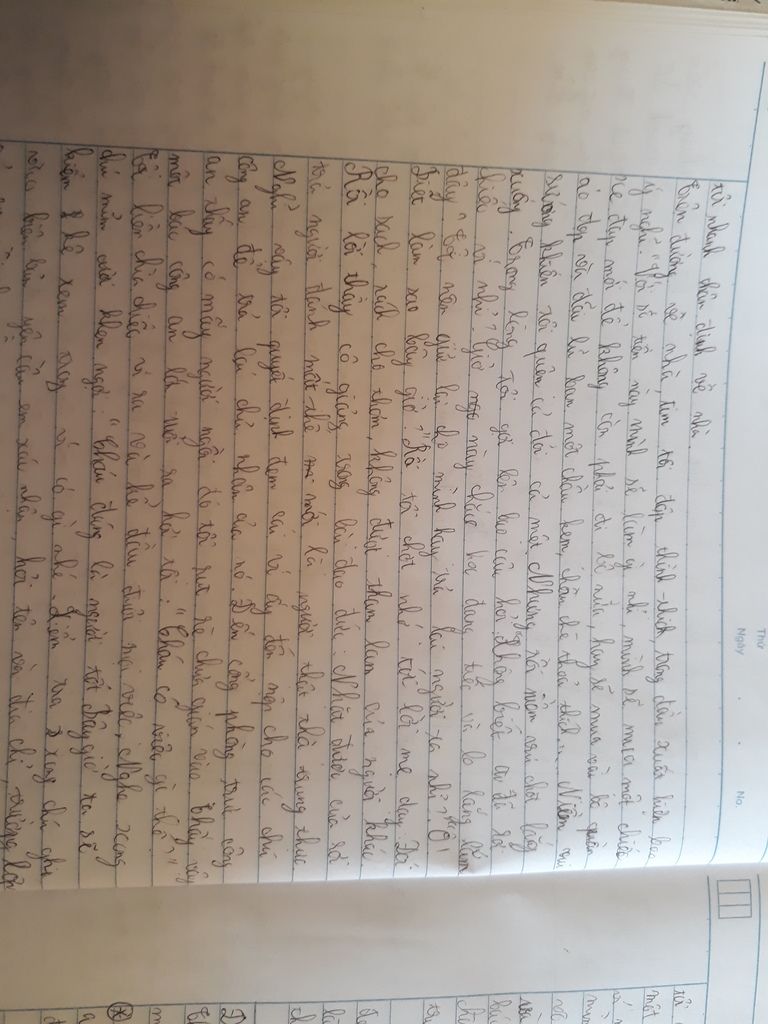 Thứ
Ngày . .
No.
từ nhanh chân dinh về nhà.
Trên đường về nhà, tim tôi đập thình thịch, trong đầu xuất hiện bao
ý nghĩ. "Với số tiền này mình sẽ làm gì nhỉ, mình sẽ mua một chiếc
xe đạp mới để không cần phải đi bộ nữa, hay sẽ mua vài bộ quần
áo đẹp và đầu là ban một chầu kem, chầu chè thoả thích... Niềm vui
sướng khiến tôi quên cả đói cả mệt. Nhưng rồi niềm vui chợt lắng
xuống. Trong lòng tôi gợi lên bao câu hỏi: "Không biết ai đã rơi
chiếc ví nhỉ? Giờ này chắc họ đang tiếc và lo lắng lắm
đây". "Có nên giữ lại cho mình hay trả lại người ta nhỉ?" "Ôi!
Biết làm sao bây giờ?" Rồi tôi chợt nhớ tới lời mẹ dạy: Đói
cho sạch, rách cho thơm, không được tham lam của người khác
Rồi lời thầy cô giảng trong bài đạo đức: Nhặt được của rơi
trả người đánh mất thế mới là người thật thà trung thực
Nghĩ vậy tôi quyết định đem cái ví ấy đến nộp cho các chú
công an để trả lại chủ nhân của nó. Đến cổng phòng trực công
an thấy có mấy người ngồi đó tôi rụt rè chưa dám vào. Thấy vậy
một bác công an lớn tuổi ra hỏi tôi: "Cháu có việc gì thế?"
Tôi liền chìa chiếc ví ra và kể đầu đuôi mọi việc. Nghe xong
chú mỉm cười khen ngợi: "Cháu đúng là người tốt. Bây giờ ta sẽ
kiểm kê xem trong ví có gì nhé. Kiểm tra xong chú ghi
vào biên bản yêu cầu em xác nhận, hỏi tên và địa chỉ, trường lớp